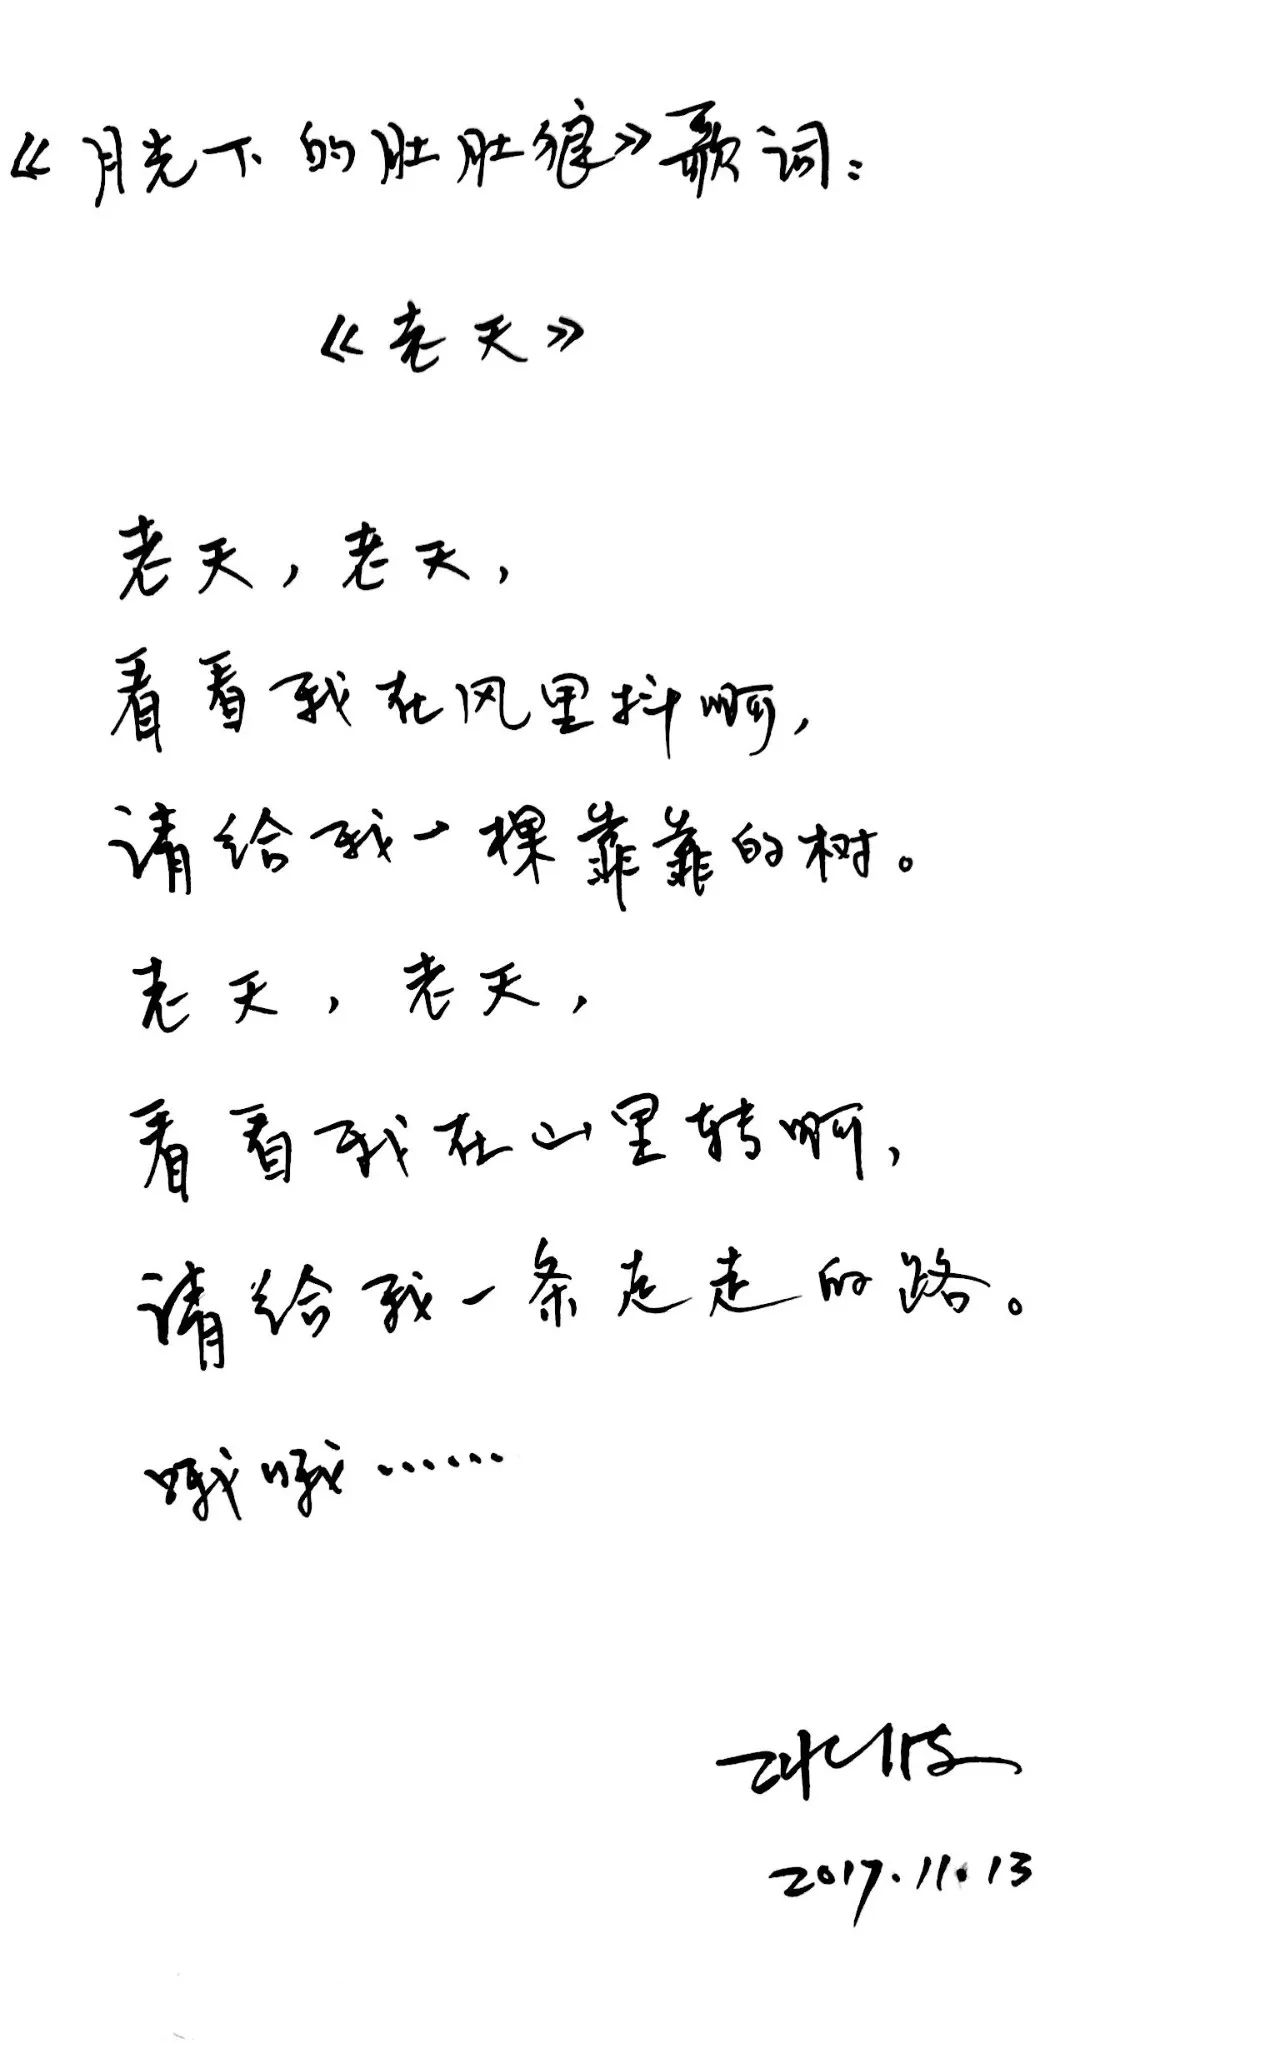 《月光下的肚肚狼》歌词：
《老天》
老天，老天，
看看我在风里抖啊，
请给我一棵靠靠的树。
老天，老天，
看看我在山里转啊，
请给我一条走走的路。
哦哦……
冰波
2017.11.13